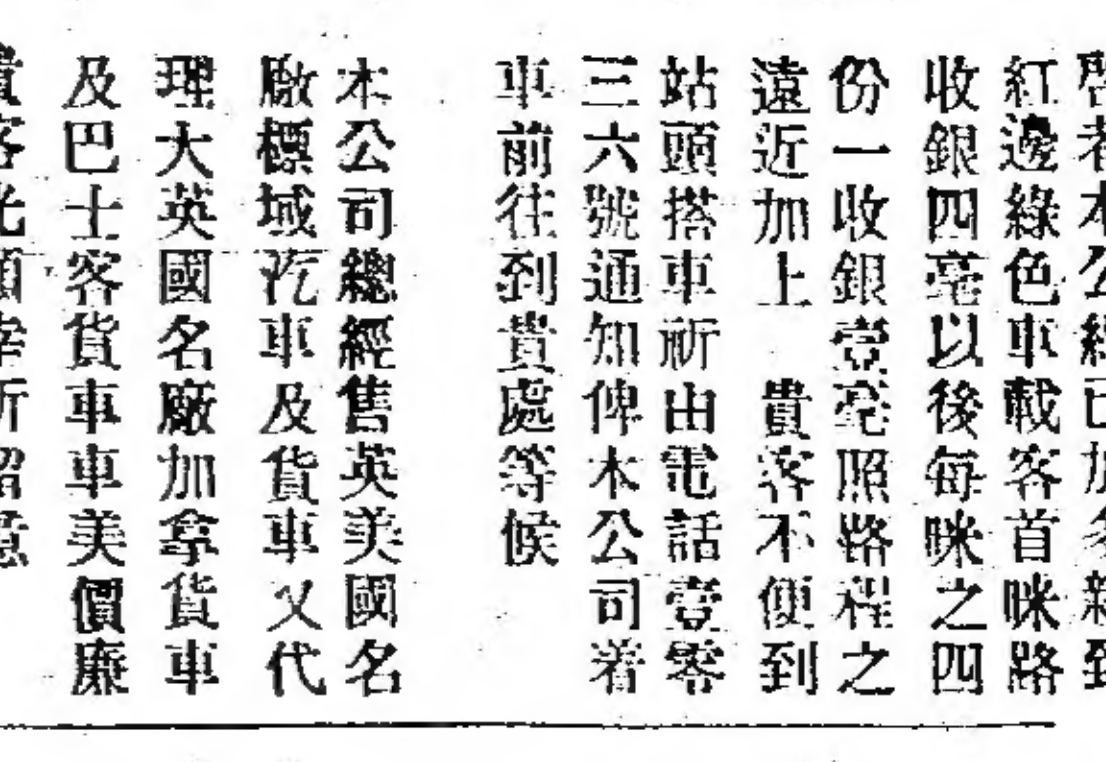 啓者本公經已加多新到
紅邊綠色車載客首咪路
收銀四毫以後每咪之四
份一收銀壹毫照路程之
遠近加上　貴客不便到
站頭搭車祈由電話壹零
三六號通知俾本公司着
車前往到貴處等候
本公司總經售英美國名
廠標域汽車及貨車又代
理大英國名廠加拿貨車
及巴士客貨車車美價廉
貴客光顧幸祈留意